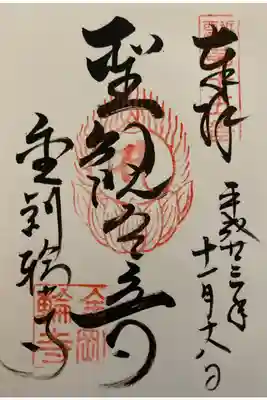 奉拝
平成廿三年
十一月十八日
聖観世音
金剛輪寺
金剛
輪寺